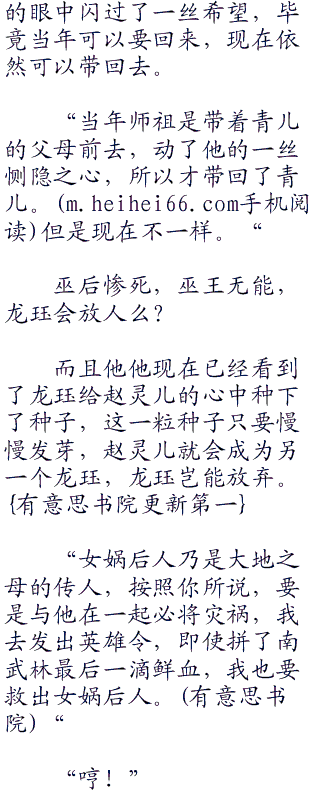 的眼中闪过了一丝希望，毕
竟当年可以要回来，现在依
然可以带回去。
“当年师祖是带着青儿
的父母前去，动了他的一丝
恻隐之心，所以才带回了青
儿。(m.heihei66.com手机阅
读)但是现在不一样。“
巫后惨死，巫王无能，
龙珏会放人么？
而且他他现在已经看到
了龙珏给赵灵儿的心中种下
了种子，这一粒种子只要慢
慢发芽，赵灵儿就会成为另
一个龙珏，龙珏岂能放弃。
{有意思书院更新第一}
“女娲后人乃是大地之
母的传人，按照你所说，要
是与他在一起必将灾祸，我
去发出英雄令，即使拼了南
武林最后一滴鲜血，我也要
救出女娲后人。(有意思书
院)“
“哼！”